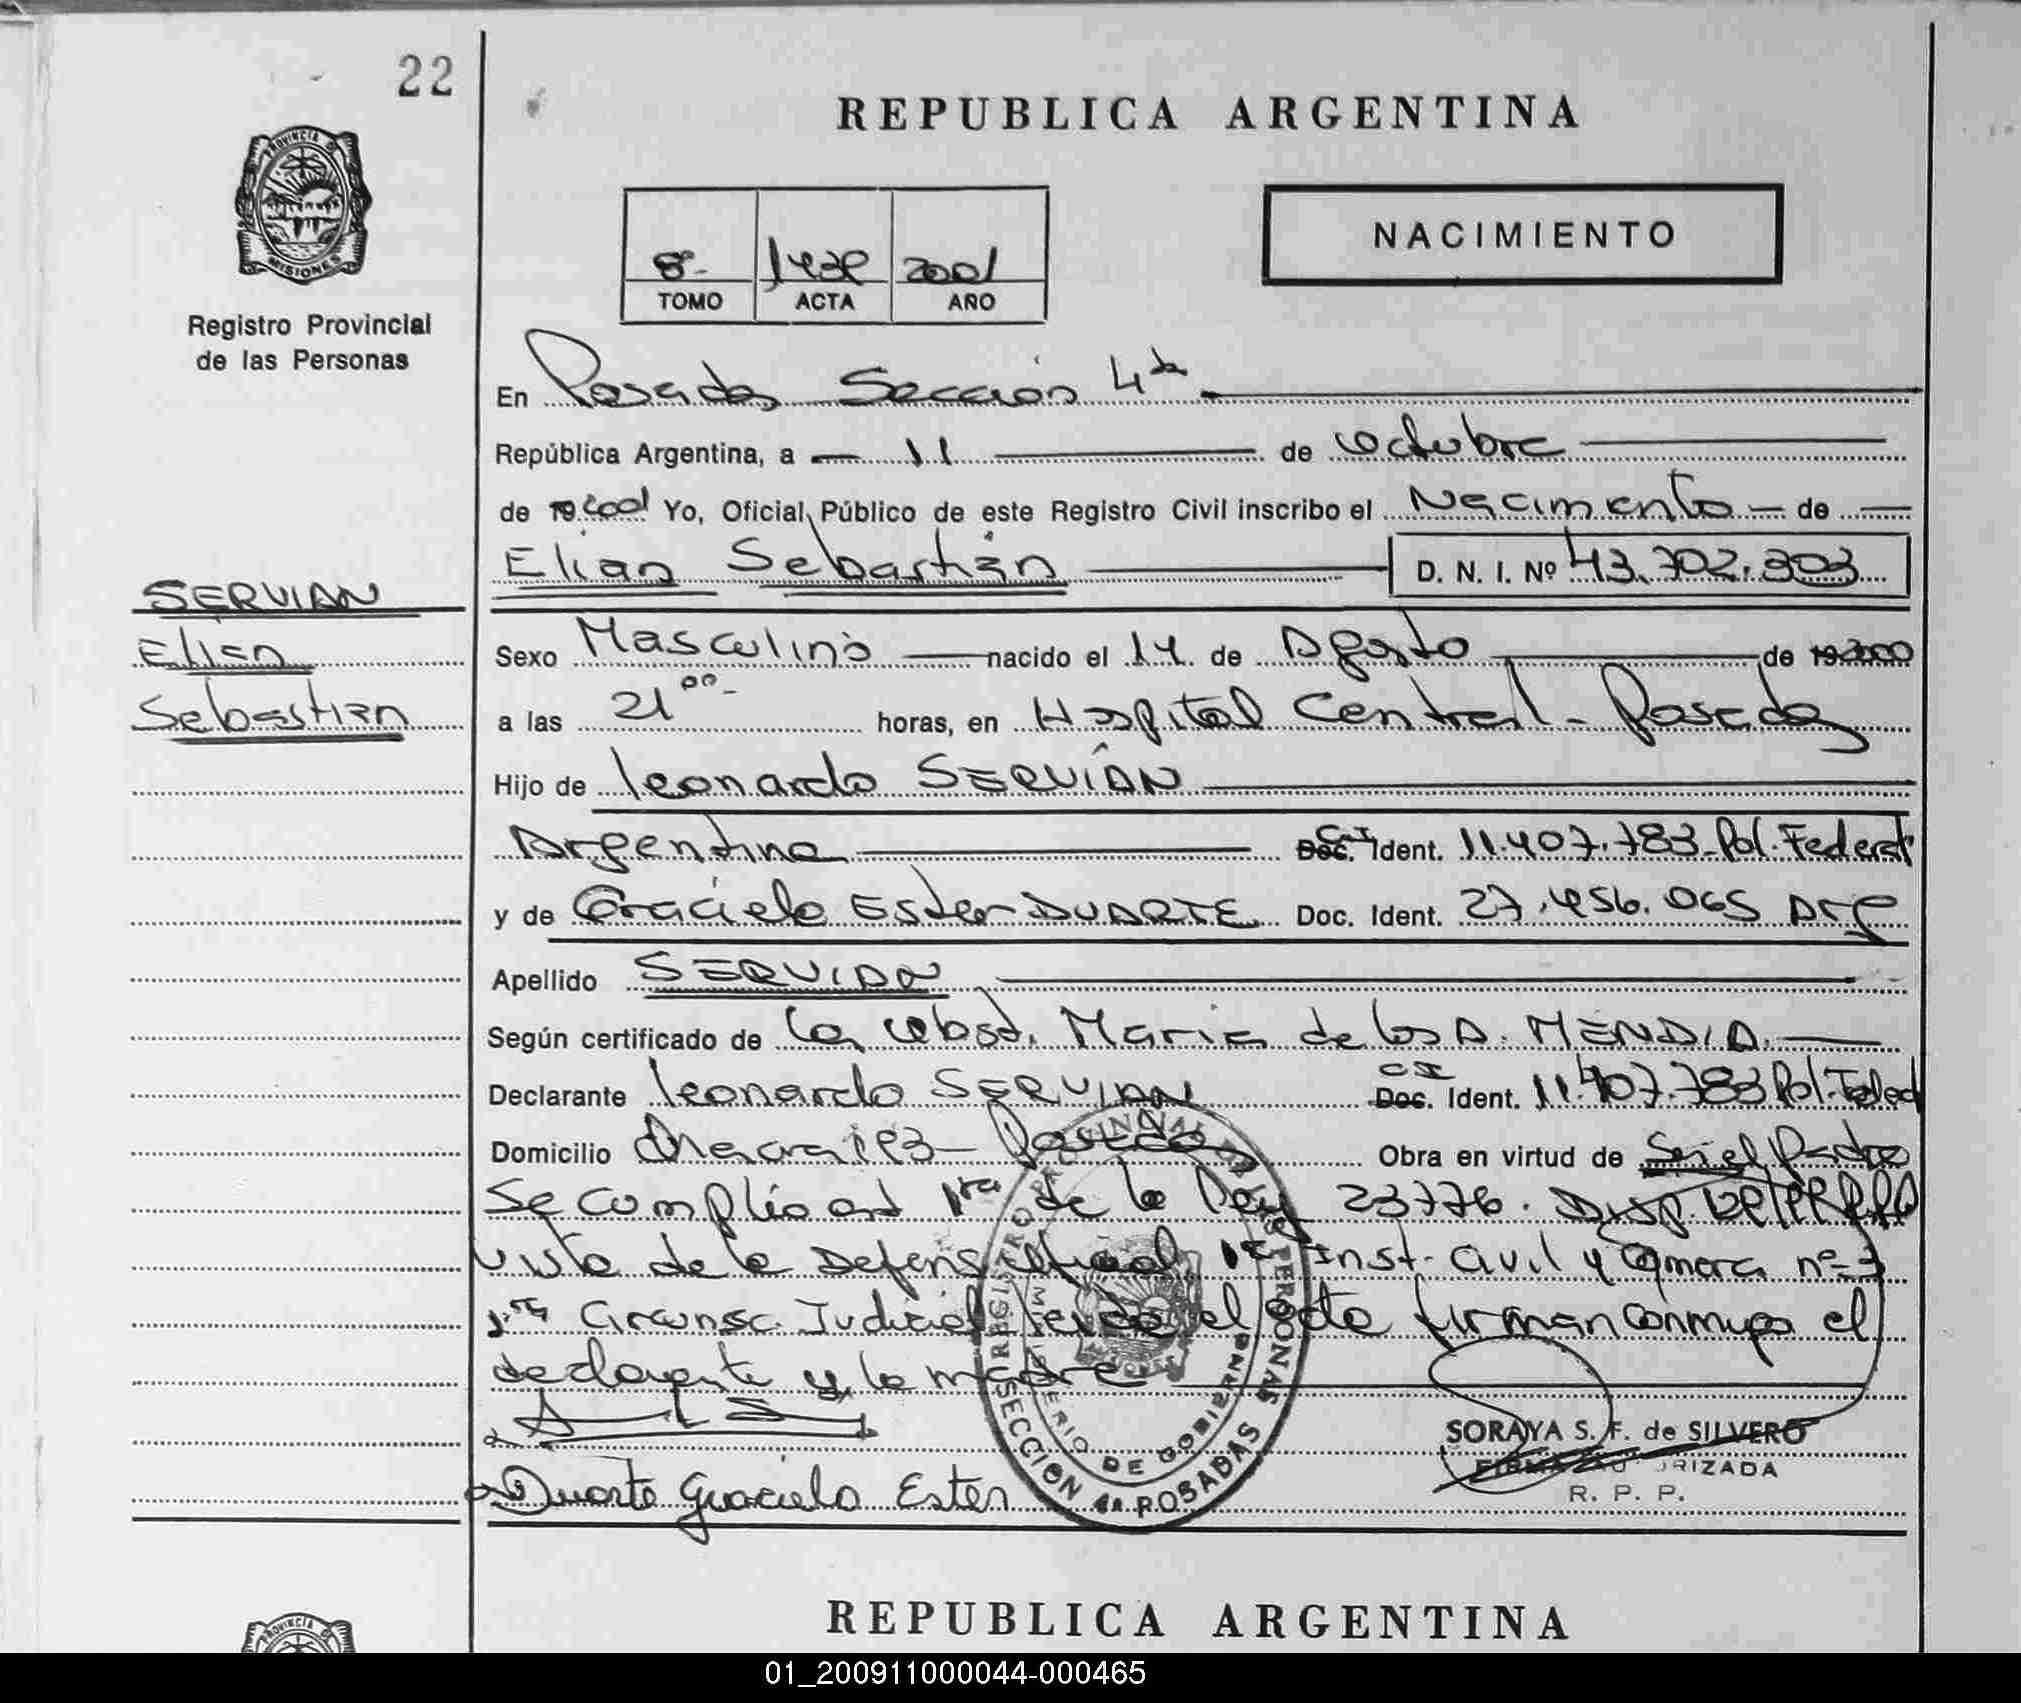 22
REPUBLICA ARGENTINA
PROVINCIA DE
MISIONES
Registro Provincial
de las Personas
NACIMIENTO
8º- 2001
TOMO ACTA AÑO
En Posadas Sección 4ta
República Argentina, a 11 de octubre
de 2001 Yo, Oficial Público de este Registro Civil inscribo el Nacimiento de
Elian Sebastián D. N. I. Nº 43.702.303
SERVIAN
Elian
Sebastián
Sexo Masculino nacido el 14 de Agosto de 2000
a las 21 00- horas, en Hospital Central - Posadas
Hijo de Leonardo SERVIÁN
Argentino C.I. Ident. 11.407.783 Pol. Federal
y de Graciela Ester DUARTE Doc. Ident. 27.456.065 Arg
Apellido SERVIAN
Según certificado de la obst. Maria de los A. MENDIA
Declarante Leonardo SERVIAN CI Ident. 11.407.783 Pol. Federal
Domicilio Chacra 123 - Posadas Obra en virtud de Ser el Padre
Se cumplió art 1ra de la Ley 23776. Disp.
Vista de la Defens oficial 1ra Inst. Civil y Comerc nº
1ra Circunsc. Judicial leida el acta firman conmigo el
declarante y la madre
SORAYA S. F. de SILVERO
FIRMA AUTORIZADA
R. P. P.
Duarte Graciela Ester
REGISTRO PROVINCIAL DE LAS PERSONAS
MINISTERIO DE GOBIERNO
SECCION 4a. POSADAS
REPUBLICA ARGENTINA
PROVINCIA DE
01_200911000044-000465